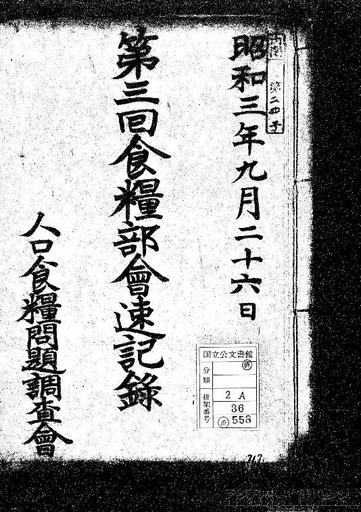 第二四号
昭和三年九月二十六日
第三回食糧部會速記録
人口食糧問題調査會
国立公文書館
分類
排架番号
2 A
36
558